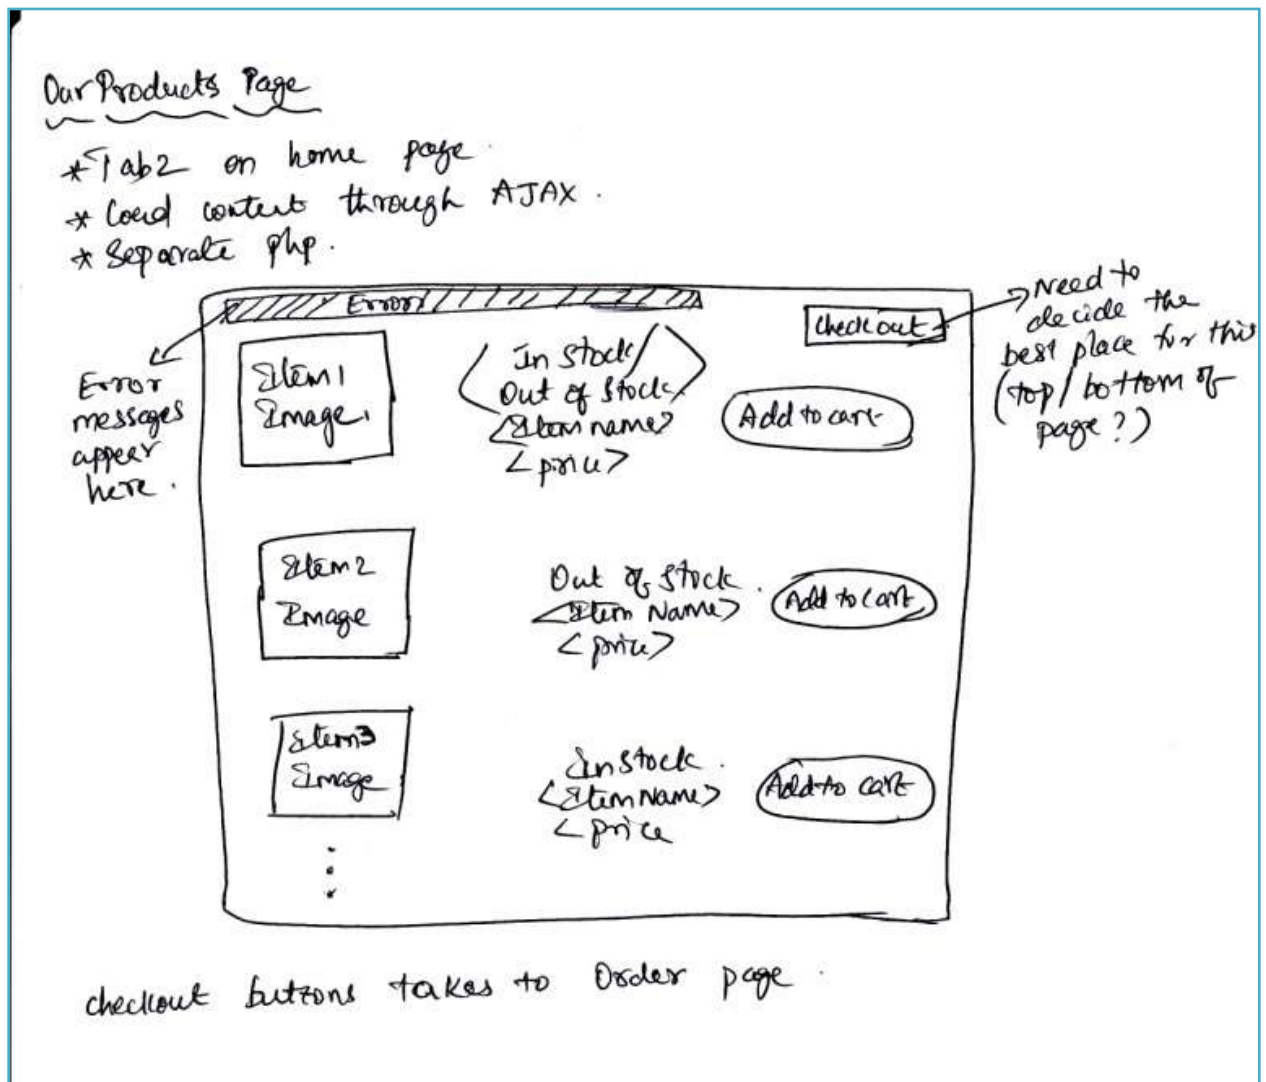 Our Products Page
* Tab2 on home page.
* Load content through AJAX.
* Separate php.
Error
checkout
Need to
decide the
best place for this
(top/bottom of
page?)
Error
messages
appear
here.
Item1
Image1
<In stock/
Out of stock>
<Item name>
<price>
Add to cart
Item2
Image
Out of stock.
<Item Name>
<price>
Add to cart
Item3
Image
In stock.
<Item Name>
<price
Add to cart
checkout buttons takes to Order page.